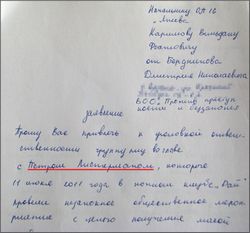 Начальнику ОП 16
"Лиева
Каримову Вильфану
Фоатовичу
от Бердникова
Дмитрия Николаевича
БОО "Против преступ
ности и беззакония
заявление
Прошу Вас привлечь к уголовной ответ-
ственности группу лиц во главе
с Петром Листерманом, которое
11 июня 2011 года в ночном клубе "Рай"
провели незаконное общественное меро-
приятие с целью получение